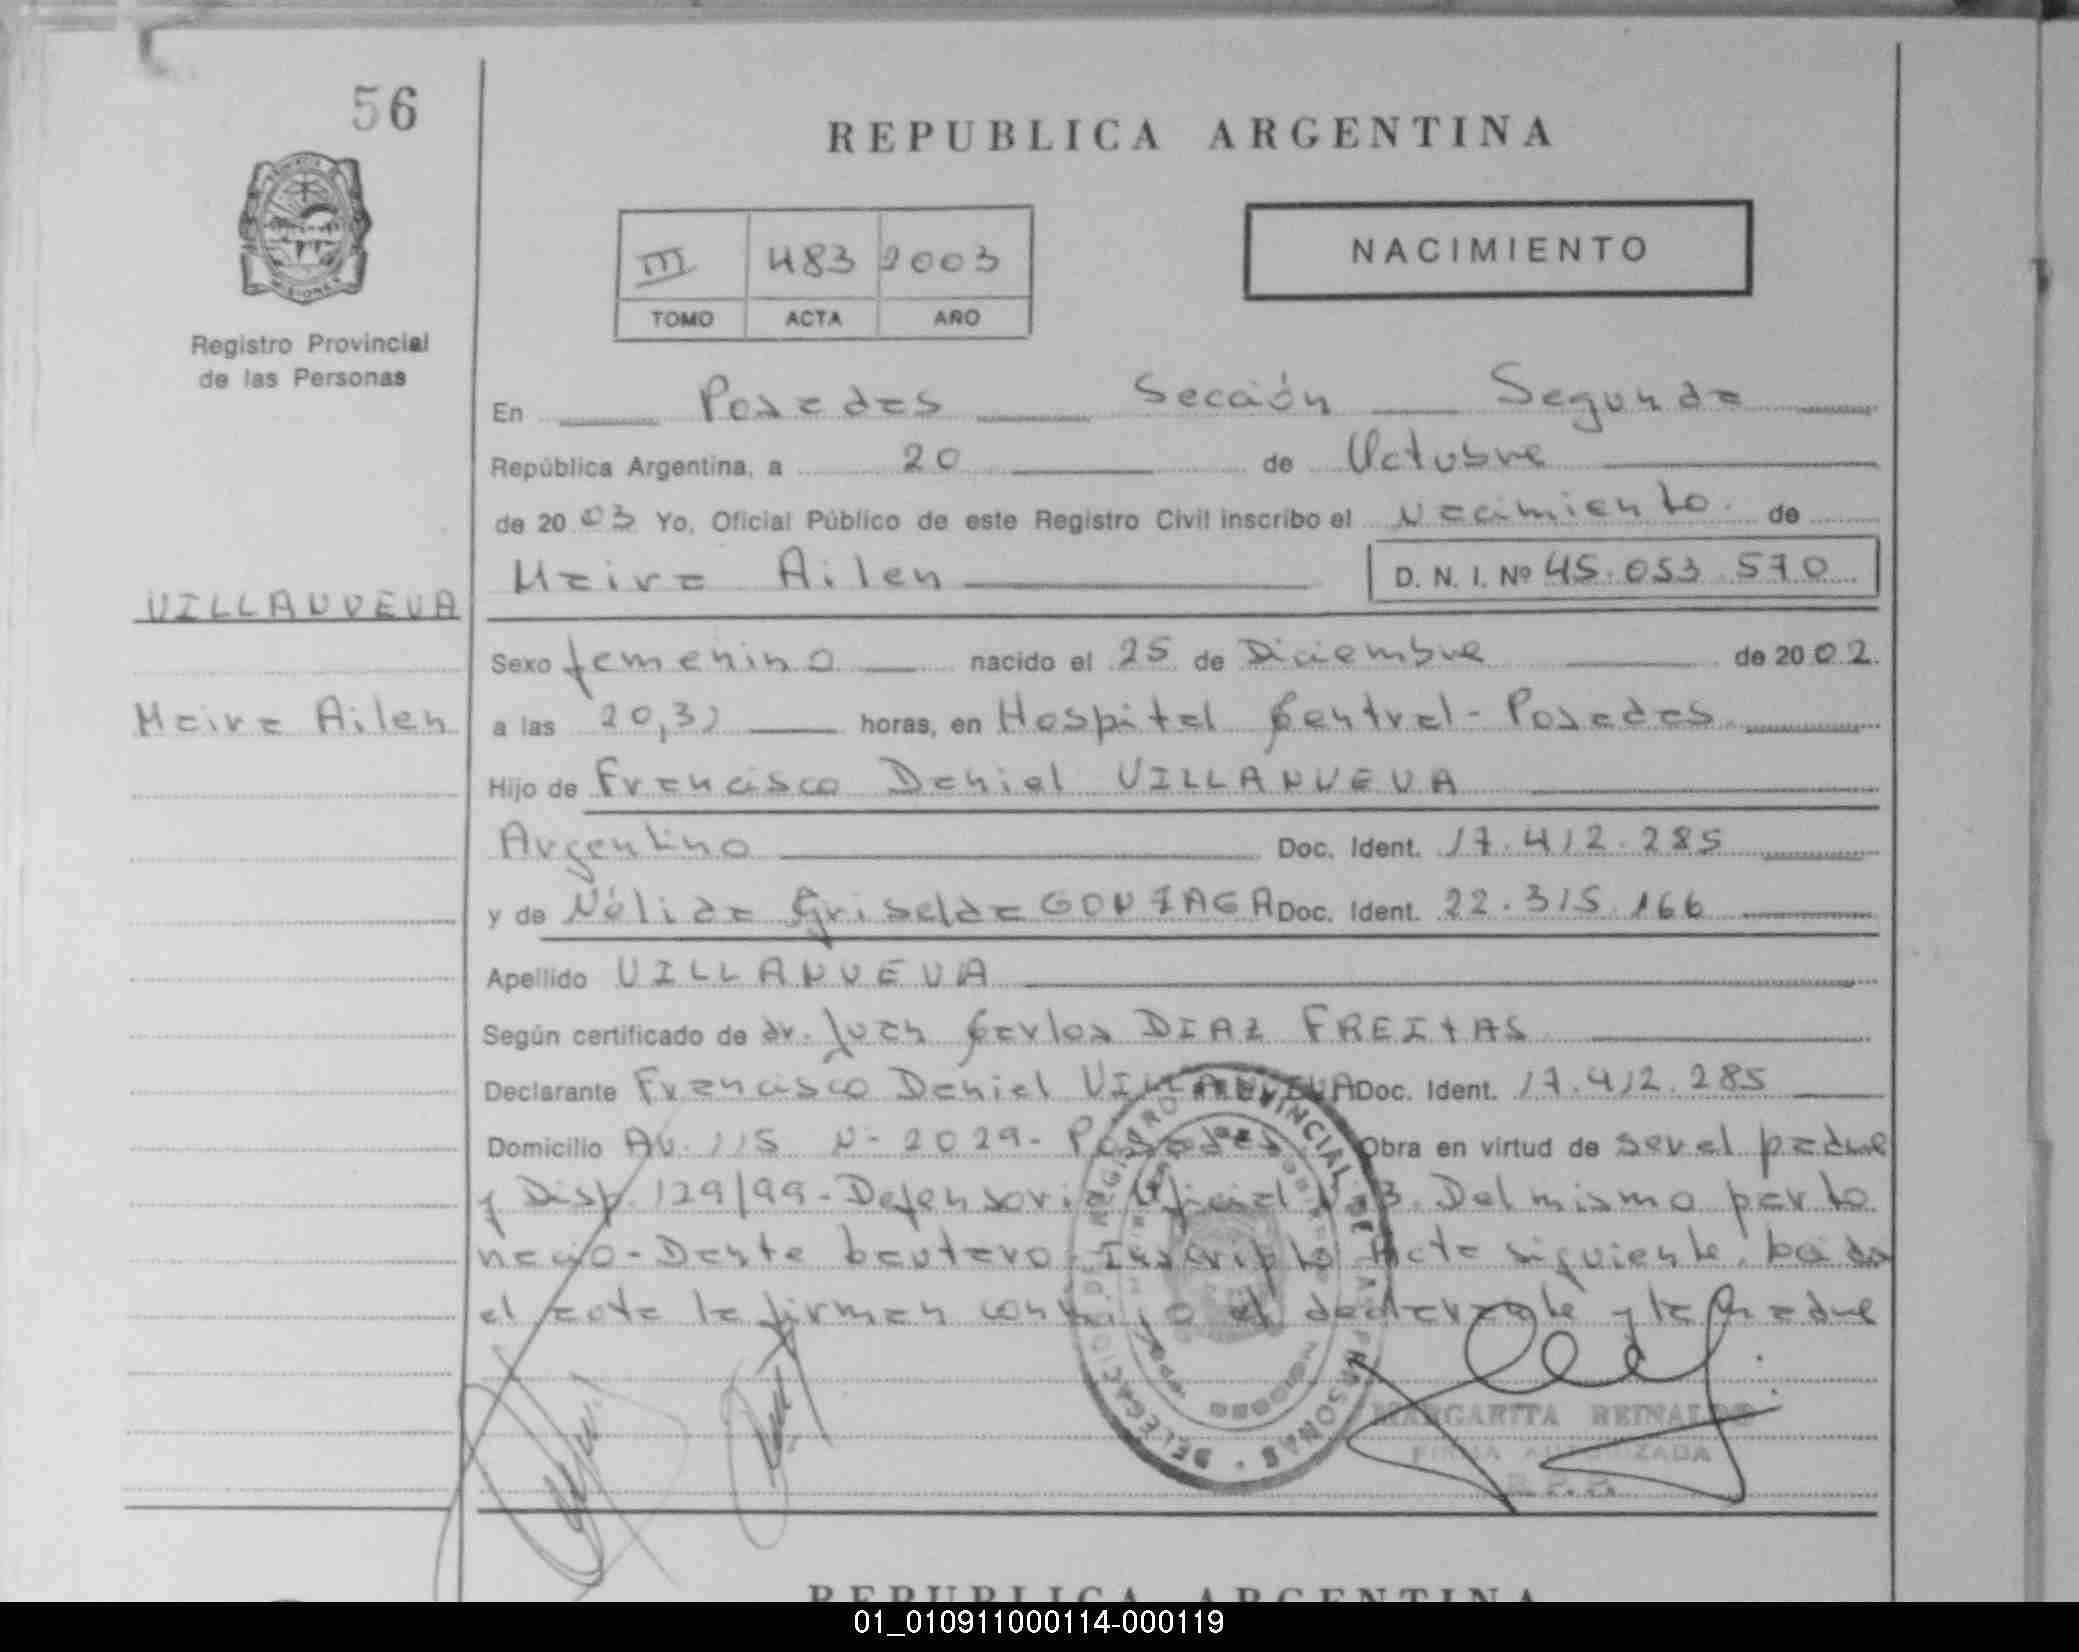 56
REPUBLICA ARGENTINA
III 483 2003
TOMO ACTA AÑO
NACIMIENTO
Registro Provincial
de las Personas
En Posadas Sección Segunda
República Argentina, a 20 de Octubre
de 2003 Yo, Oficial Público de este Registro Civil inscribo el Nacimiento de
Maira Ailen D. N. I. Nº 45.053.570
VILLANUEVA
Sexo femenino nacido el 25 de Diciembre de 2002.
Maira Ailen
a las 20,32 horas, en Hospital Central - Posadas
Hijo de Francisco Daniel VILLANUEVA
Argentino Doc. Ident. 17.412.285
y de Nélida Griselda GONZAGA Doc. Ident. 22.315.166
Apellido VILLANUEVA
Según certificado de dr. Juan Carlos DIAZ FREITAS
Declarante Francisco Daniel VILLANUEVA Doc. Ident. 17.412.285
Domicilio Av. 115 N- 2029- Posadas Obra en virtud de ser el padre
y Disp. 129/99 - Defensoria Oficial 3. Del mismo parto
nacio - Inscripto Acta siguiente.
el acta la firman conmigo el declarante y la Madre
DELEGACION REGISTRO PROVINCIAL DE LAS PERSONAS
MARGARITA REINALDO
FIRMA AUTORIZADA
REPUBLICA ARGENTINA
01_010911000114-000119